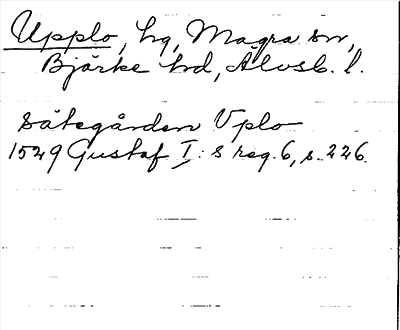 Upplo, hg, Magra sn,
Bjärke hd, Älvsb. l.
Sätegården Vplo
1529 Gustaf I: s reg. 6, s. 226.